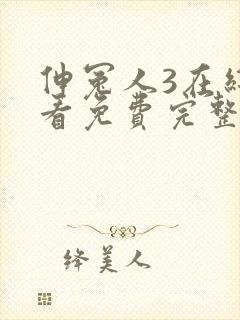 伸冤人3在线
看免费完整
绛美人